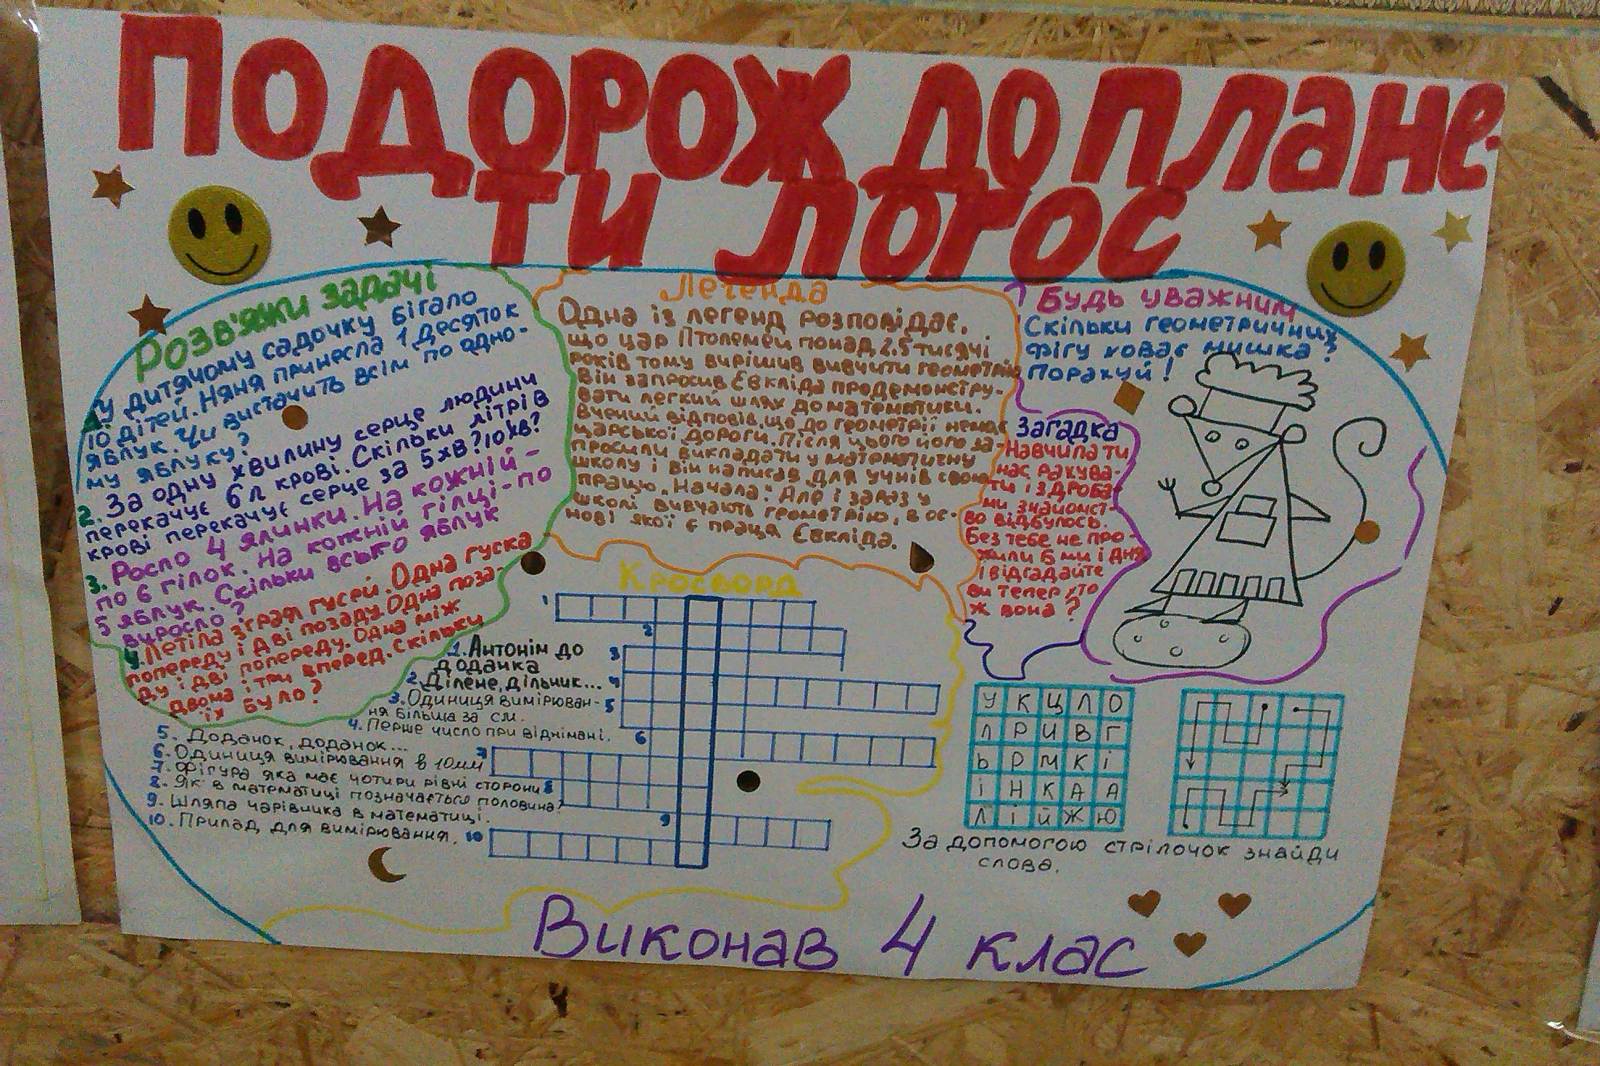 ПОДОРОЖ ДО ПЛАНЕ-
ТИ ЛОГОС
Розв'яжи задачі
1. У дитячому садочку бігало
10 дітей. Няня принесла 1 десяток
яблук. Чи вистачить всім по одно-
му яблуку?
2. За одну хвилину серце людини
перекачує 6 л крові. Скільки літрів
крові перекачує серце за 5 хв? 10 хв?
3. Росло 4 ялинки. На кожній -
по 6 гілок. На кожній гілці - по
5 яблук. Скільки всього яблук
виросло?
4. Летіла зграя гусей. Одна гуска
попереду і дві позаду. Одна поза-
ду і дві попереду. Одна між
двома і три вперед. Скільки
їх було?
Легенда
Одна із легенд розповідає,
що цар Птолемей понад 2,5 тисячі
років тому вирішив вивчити геометрію
Він запросив Евкліда продемонстру-
вати легкий шлях до математики.
Вчений відповів, що до геометрії немає
царської дороги. Після цього його за-
просили викладати у математичну
школу і він написав для учнів свою
працю „Начала". Але і зараз у
школі вивчають геометрію, в ос-
нові якої є праця Евкліда.
Будь уважним
Скільки геометричних
фігу ховає мишка?
Порахуй!
Загадка
Навчила ти
нас рахува-
ти і з дроба-
ми, знайомст-
во відбулось.
Без тебе не про-
жили б ми і дня
І відгадайте
ви тепер хто
ж вона?
Кросворд
1
2
3
4
5
6
7
8
9
10
1. Антонім до
доданка
2. Ділене, дільник...
3. Одиниця вимірюван-
ня більша за см.
4. Перше число при відніманні.
5. Доданок, доданок...
6. Одиниця вимірювання в 10мм
7. Фігура яка має чотири рівні сторони
8. Як в математиці позначається половина?
9. Шляпа чарівника в математиці.
10. Прилад для вимірювання.
У К Ц Л О
Л Р И В Г
Ь Р М К І
І Н К А А
Л І Й Ж Ю
За допомогою стрілочок знайди
слова.
Виконав 4 клас